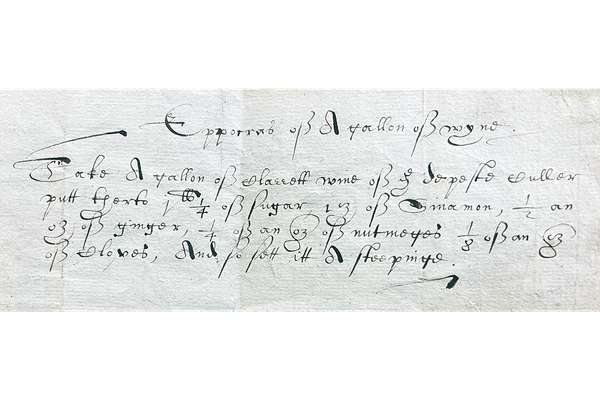 Eppocras off A gallon off wyne.
Take A gallon off Clarrett wine off ye depeste Culler
putt therto 1 lb 1/4 off sugar 1 oz off Sinamon, 1/2 an
oz off ginger, 1/4 off an oz off nutmeges 1/8 off an oz
off Cloves, And so sett itt A steepinge.